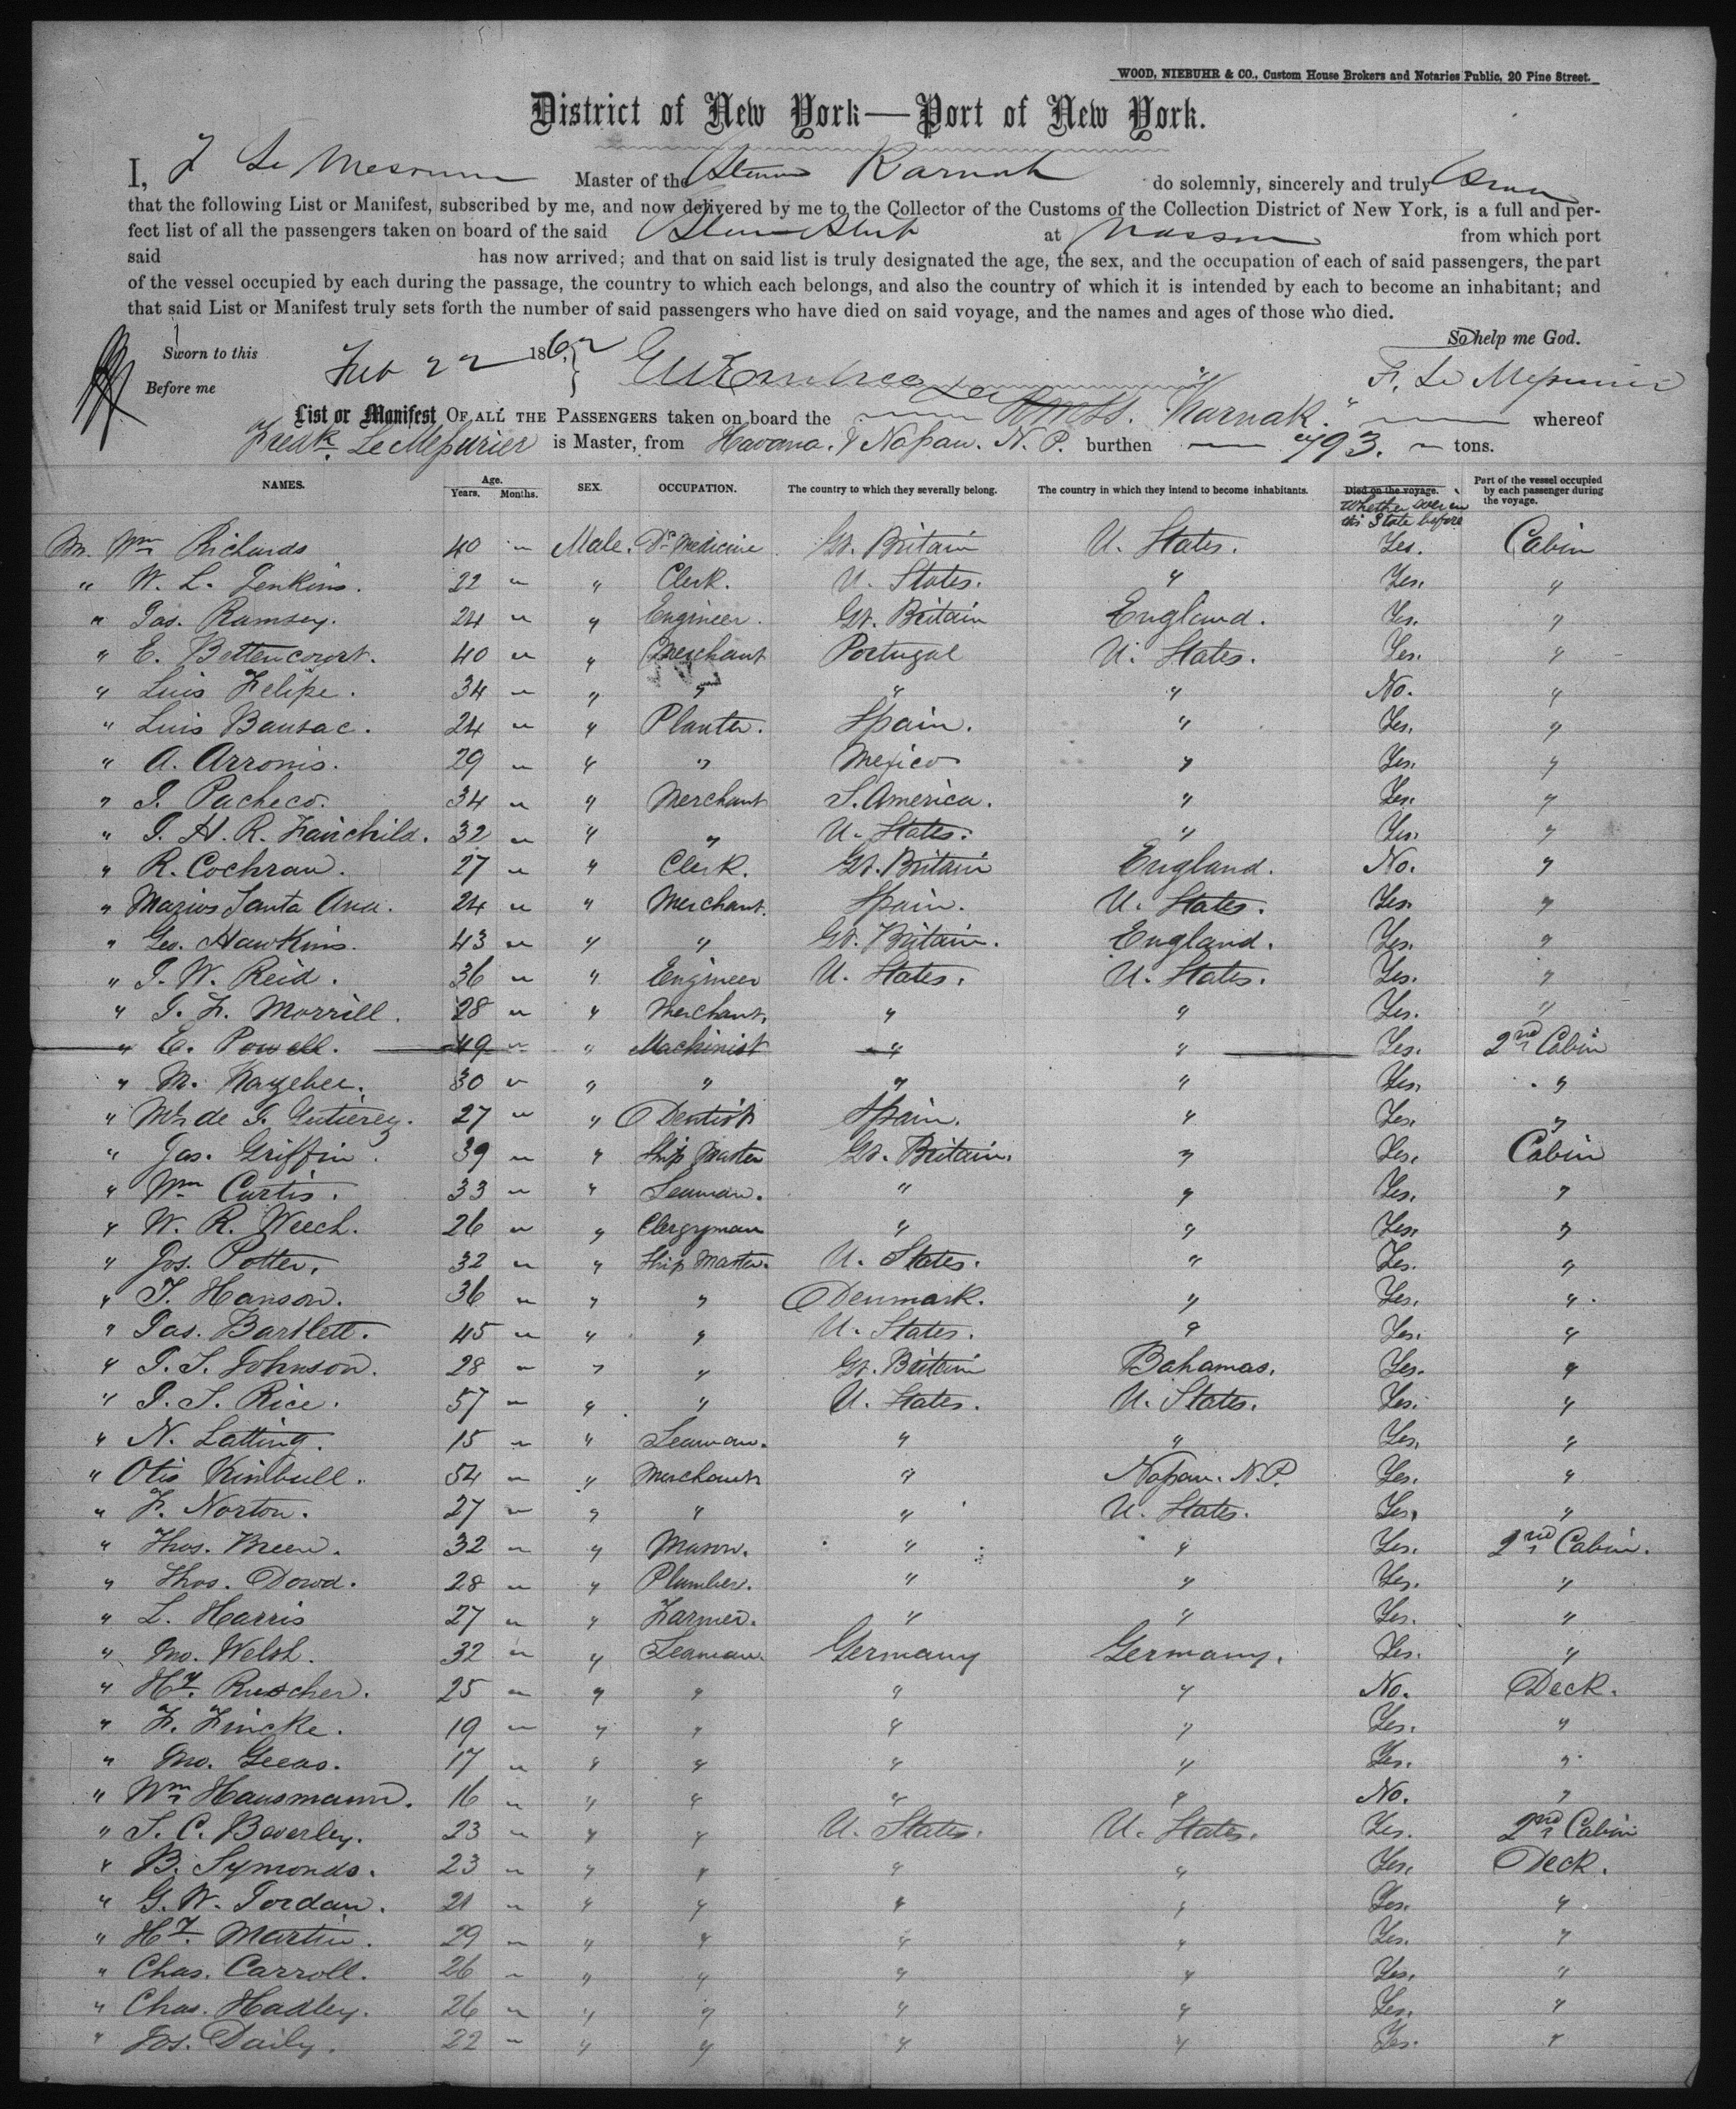 WOOD, NIEBUHR & CO., Custom House Brokers and Notaries Public, 20 Pine Street.
District of New York—Port of New York.
I, F Le Mesurier Master of the Steamer Karnak do solemnly, sincerely and truly Swear
that the following List or Manifest, subscribed by me, and now delivered by me to the Collector of the Customs of the Collection District of New York, is a full and per-
fect list of all the passengers taken on board of the said Steam Ship at Nassau from which port
said has now arrived; and that on said list is truly designated the age, the sex, and the occupation of each of said passengers, the part
of the vessel occupied by each during the passage, the country to which each belongs, and also the country of which it is intended by each to become an inhabitant; and
that said List or Manifest truly sets forth the number of said passengers who have died on said voyage, and the names and ages of those who died.
So help me God.
Sworn to this Feb 22 1862
Before me F. Le Mesurier
List or Manifest OF ALL THE PASSENGERS taken on board the R.M.S.S. "Karnak." whereof
Fredk. Le Mesurier is Master, from Havana. & Nassau. N. P. burthen 793. tons.
NAMES. Age. Years. Months. SEX. OCCUPATION. The country to which they severally belong. The country in which they intend to become inhabitants. Died on the voyage. Whether ever in this State before Part of the vessel occupied by each passenger during the voyage.
M. Wm Richards 40 " Male. Dr. Medicine Gt. Britain U. States. Yes. Cabin
" W. L. Jenkins. 22 " " Clerk. U. States. " Yes. "
" Jas. Ramsey. 24 " " Engineer. Gt. Britain England. Yes. "
" E. Bettencourt. 40 " " Merchant Portugal U. States. Yes. "
" Luis Felipe. 34 " " " " " No. "
" Luis Bausac. 24 " " Planter. Spain. " Yes. "
" A. Arronis. 29 " " " Mexico " Yes. "
" J. Pacheco. 34 " " Merchant S. America. " Yes. "
" J. H. R. Fairchild. 32 " " " U. States. " Yes. "
" R. Cochran. 27 " " Clerk. Gt. Britain England. No. "
" Marios Santa Ana. 24 " " Merchant. Spain. U. States. Yes. "
" Geo. Hawkins. 43 " " " Gt. Britain. England. Yes. "
" J. W. Reid. 36 " " Engineer U. States. U. States. Yes. "
" J. F. Morrill. 28 " " Merchant. " " Yes. "
" E. Powell. 49 " " Machinist " " Yes. 2nd Cabin
" M. Kayeher. 30 " " " " " Yes. "
" Ml. de J. Gutierez. 27 " " Dentist Spain. " Yes. "
" Jas. Griffin. 39 " " Ship Master Gt. Britain. " Yes. Cabin
" Wm Curtis. 33 " " Seaman. " " Yes. "
" W. R. Weech. 26 " " Clergyman " " Yes. "
" Jos. Potter. 32 " " Ship Master. U. States. " Yes. "
" T. Hanson. 36 " " " Denmark. " Yes. "
" Jas. Bartlett. 45 " " " U. States. " Yes. "
" J. S. Johnson. 28 " " " Gt. Britain Bahamas. Yes. "
" J. S. Rice. 57 " " " U. States. U. States. Yes. "
" N. Latting. 15 " " Seaman. " " Yes. "
" Otis Kimball. 54 " " Merchant. " Nassau. N.P. Yes. "
" F. Norton. 27 " " " " U. States. Yes. "
" Thos. Breen. 32 " " Mason. " " Yes. 2nd Cabin.
" Thos. Dowd. 28 " " Plumber. " " Yes. "
" L. Harris 27 " " Farmer. " " Yes. "
" Jno. Welsh. 32 " " Seaman. Germany Germany. Yes. "
" Hy. Ruscher. 25 " " " " " No. Deck.
" F. Fincke. 19 " " " " " Yes. "
" Jno. Geeas. 17 " " " " " Yes. "
" Wm Hausmann. 16 " " " " " No. "
" S. C. Beverley. 23 " " " U. States. U. States. Yes. 2nd Cabin
" B. Symonds. 23 " " " " " Yes. Deck.
" G. W. Jordan. 21 " " " " " Yes. "
" Hy. Martin. 29 " " " " " Yes. "
" Chas. Carroll. 26 " " " " " Yes. "
" Chas. Hadley. 26 " " " " " Yes. "
" Jos. Daily. 22 " " " " " Yes. "